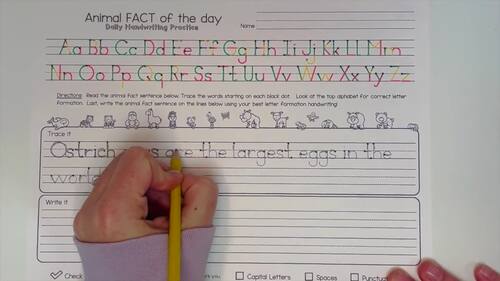 Animal FACT of the day
Daily Handwriting Practice
Name
Aa Bb Cc Dd Ee Ff Gg Hh Ii Jj Kk Ll Mm
Nn Oo Pp Qq Rr Ss Tt Uu Vv Ww Xx Yy Zz
Directions: Read the animal fact sentence below. Trace the words starting on each black dot. Look at the top alphabet for correct letter
formation. Last, write the animal fact sentence on the lines below using your best letter formation handwriting!
Trace it
Ostrich are the largest eggs in the
Write it
Check Capital Letters Spaces